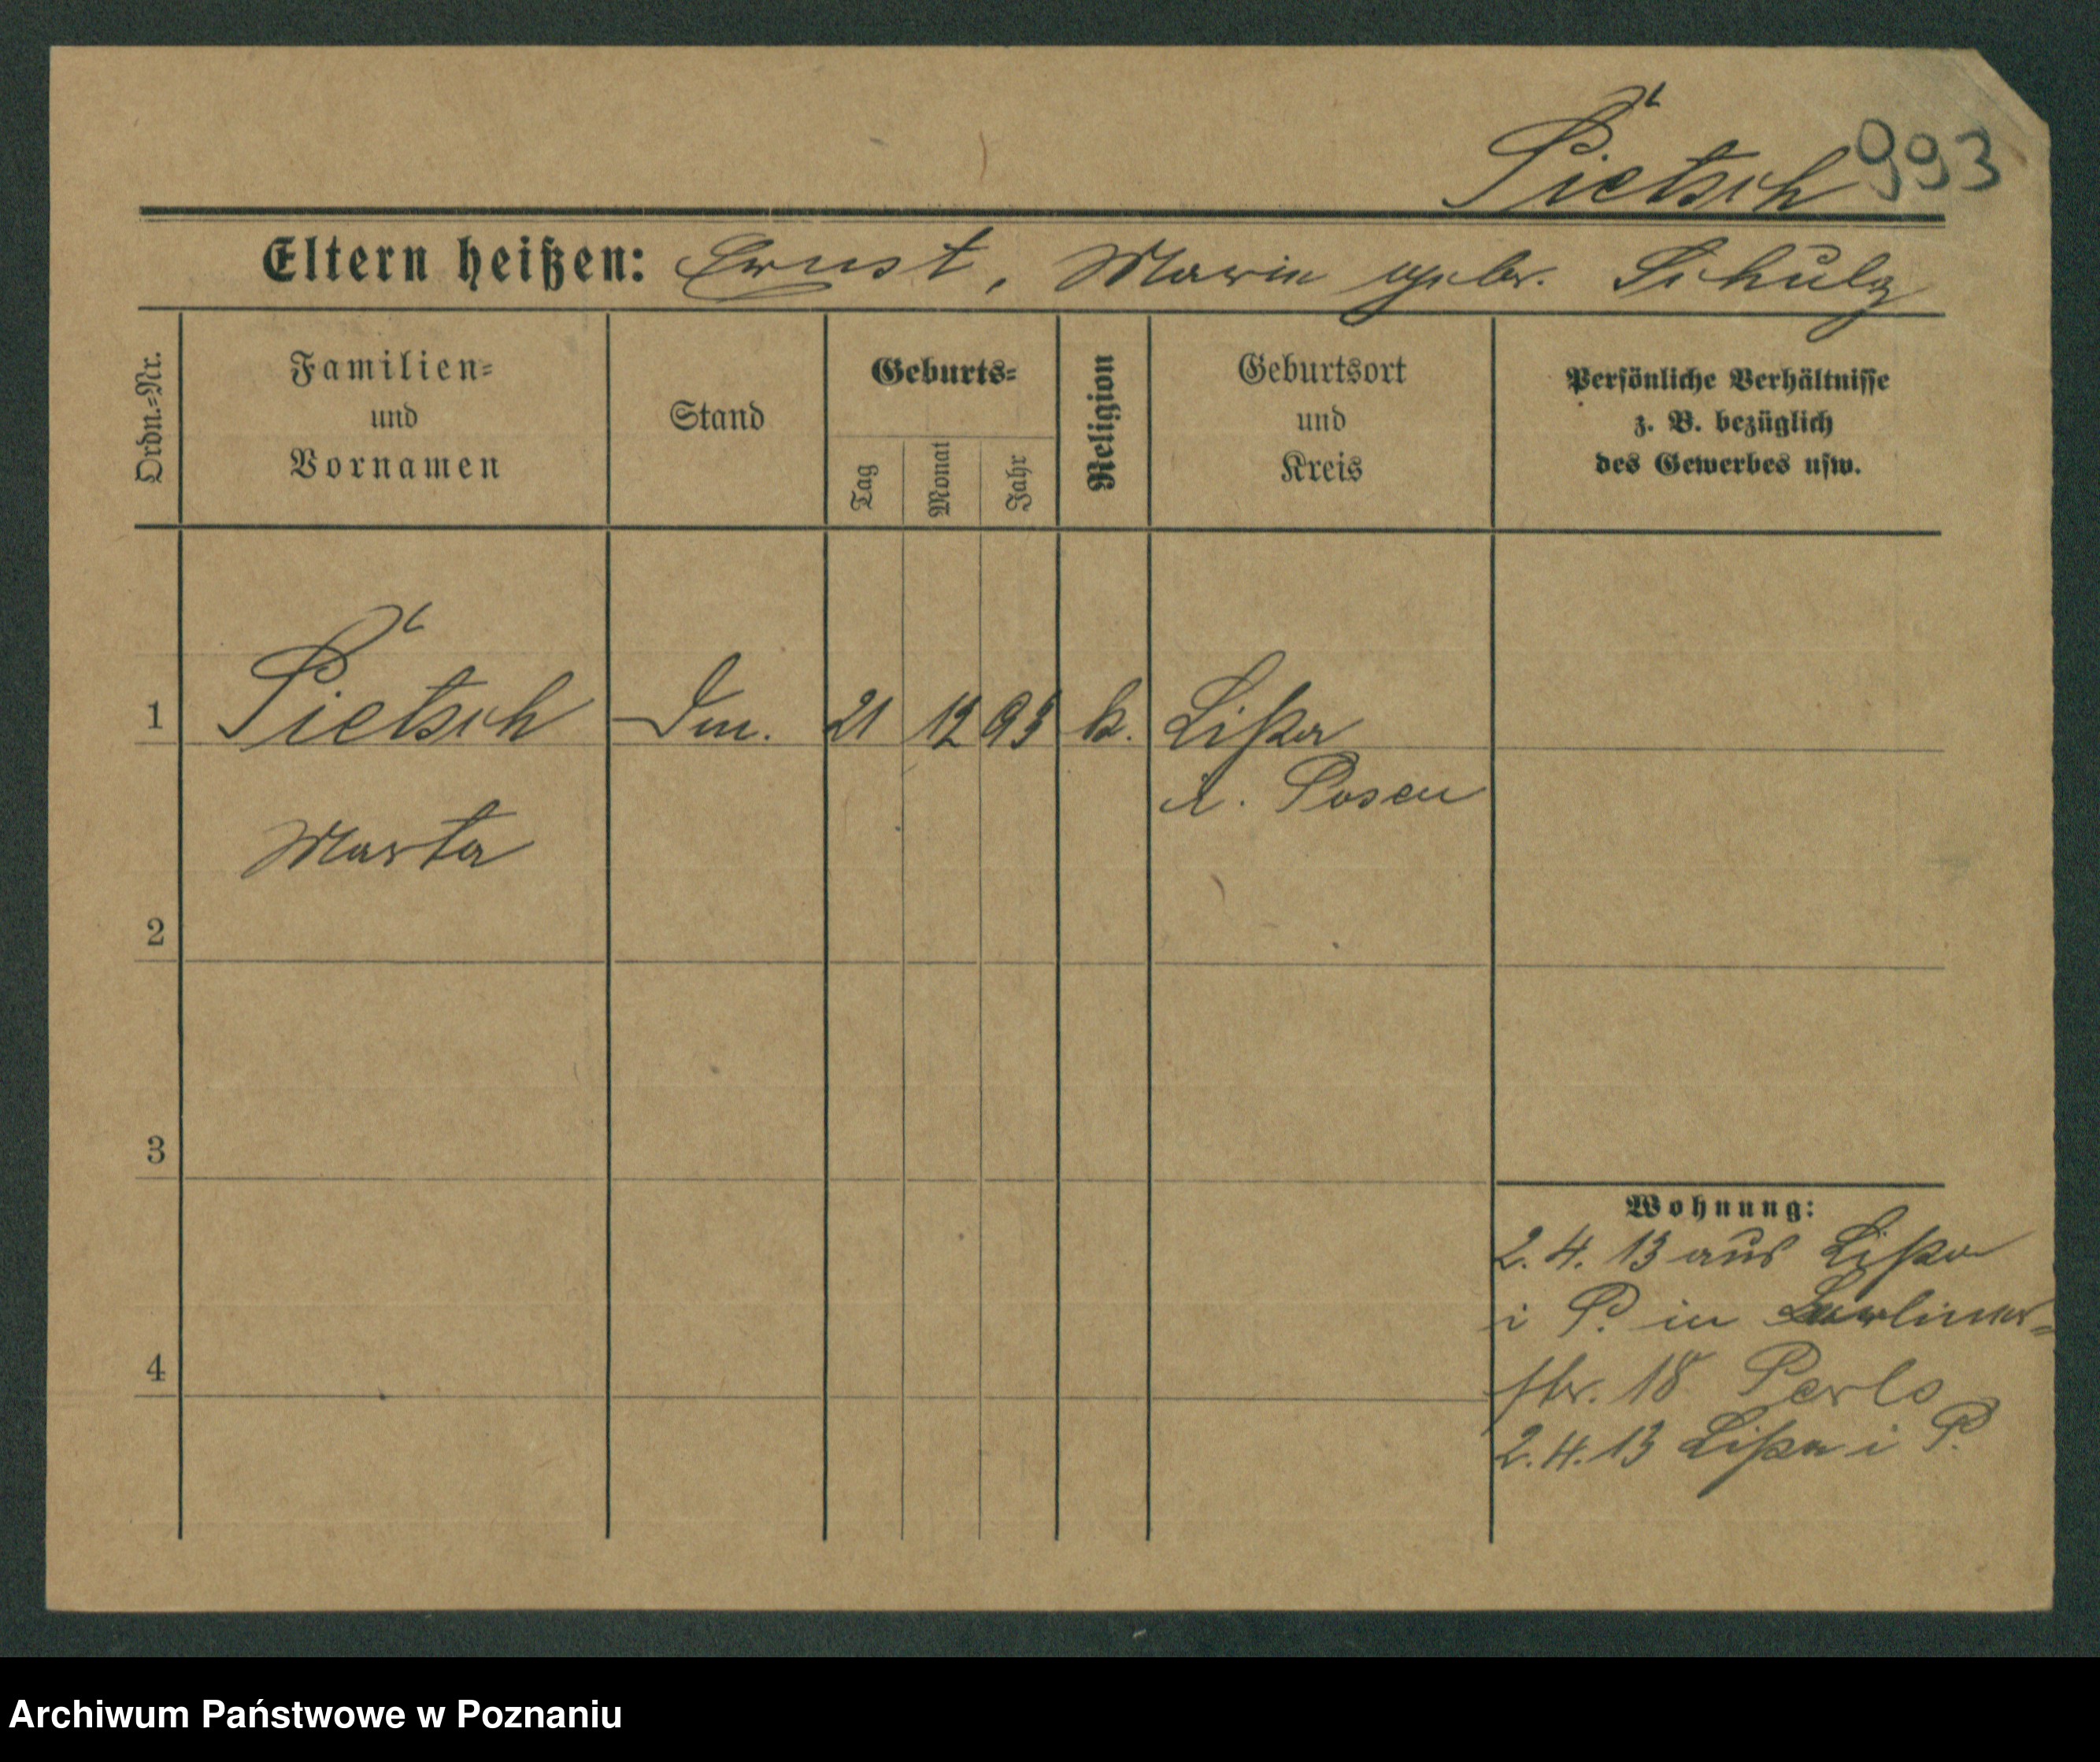 Pietsch 993
Eltern heißen: Ernst, Marie geb. Schulz
Ordn.=Nr.
Familien=
und
Vornamen
Stand
Geburts=
Tag
Monat
Jahr
Religion
Geburtsort
und
Kreis
Persönliche Verhältnisse
z. B. bezüglich
des Gewerbes usw.
1 Pietsch 21 12 93 k. Lissa
i. Posen
Marta
2
3
4
Wohnung:
2. 4. 13 aus Lissa
i P. in Berliner=
str. 18
2. 4. 13 Lissa i P.
Archiwum Państwowe w Poznaniu